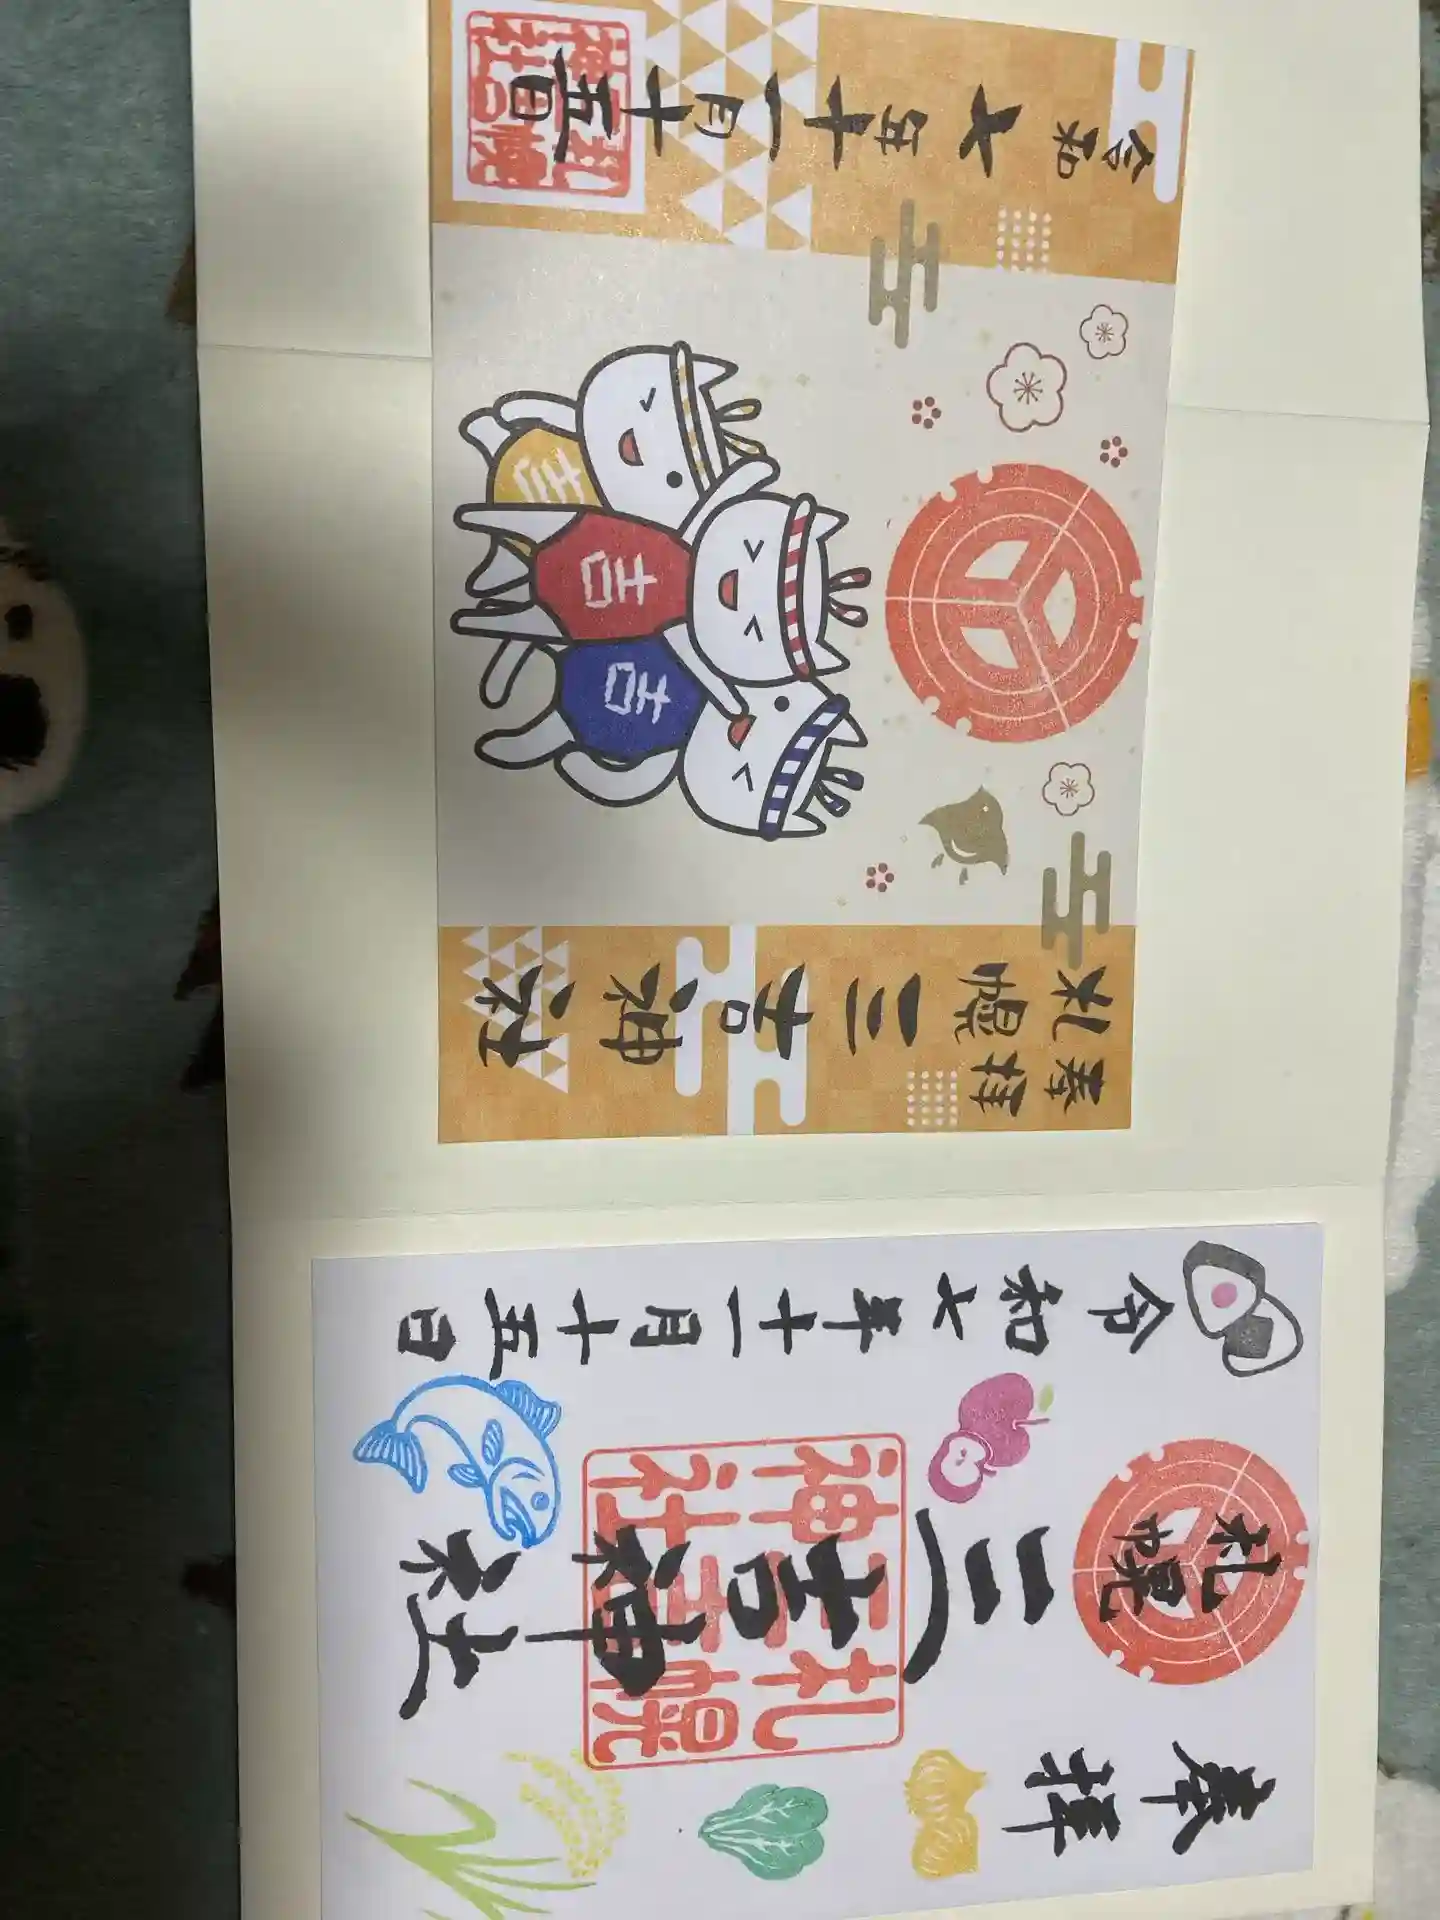 奉拝
札幌
三吉神社
札幌
三吉
神社
令和七年十一月十五日
奉拝
札幌
三吉神社
吉
吉
吉
令和七年十一月十五日
札幌
三吉
神社